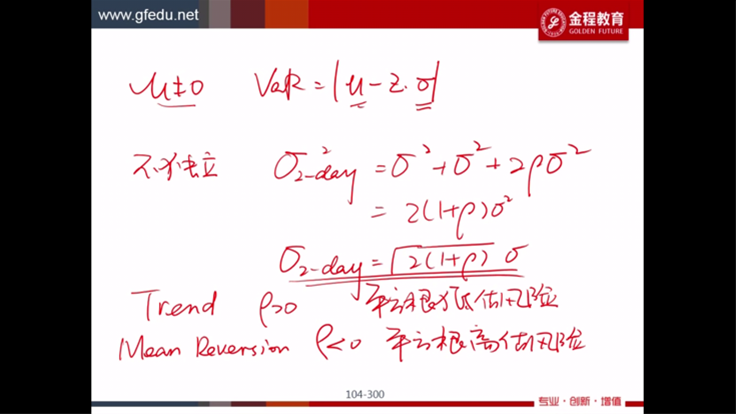 www.gfedu.net
金程教育
GOLDEN FUTURE
μ≠0 VaR = |μ - z·σ|
不独立 σ²₂₋day = σ² + σ² + 2ρσ²
= 2(1+ρ)σ²
σ₂₋day = √2(1+ρ) σ
Trend ρ>0 平方根低估风险
Mean Reversion ρ<0 平方根高估风险
104-300
专业·创新·增值